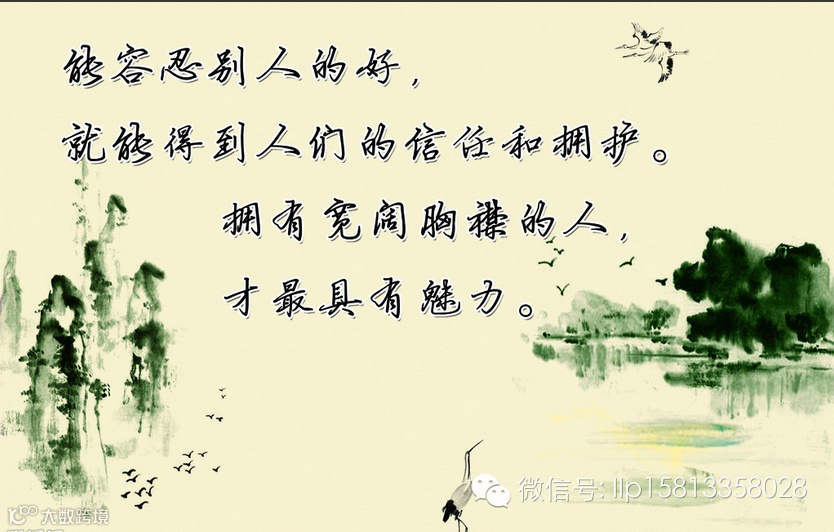 能容忍别人的好，
就能得到人们的信任和拥护。
拥有宽阔胸襟的人，
才最具有魅力。
微信号: llp15813358028
大数跨境